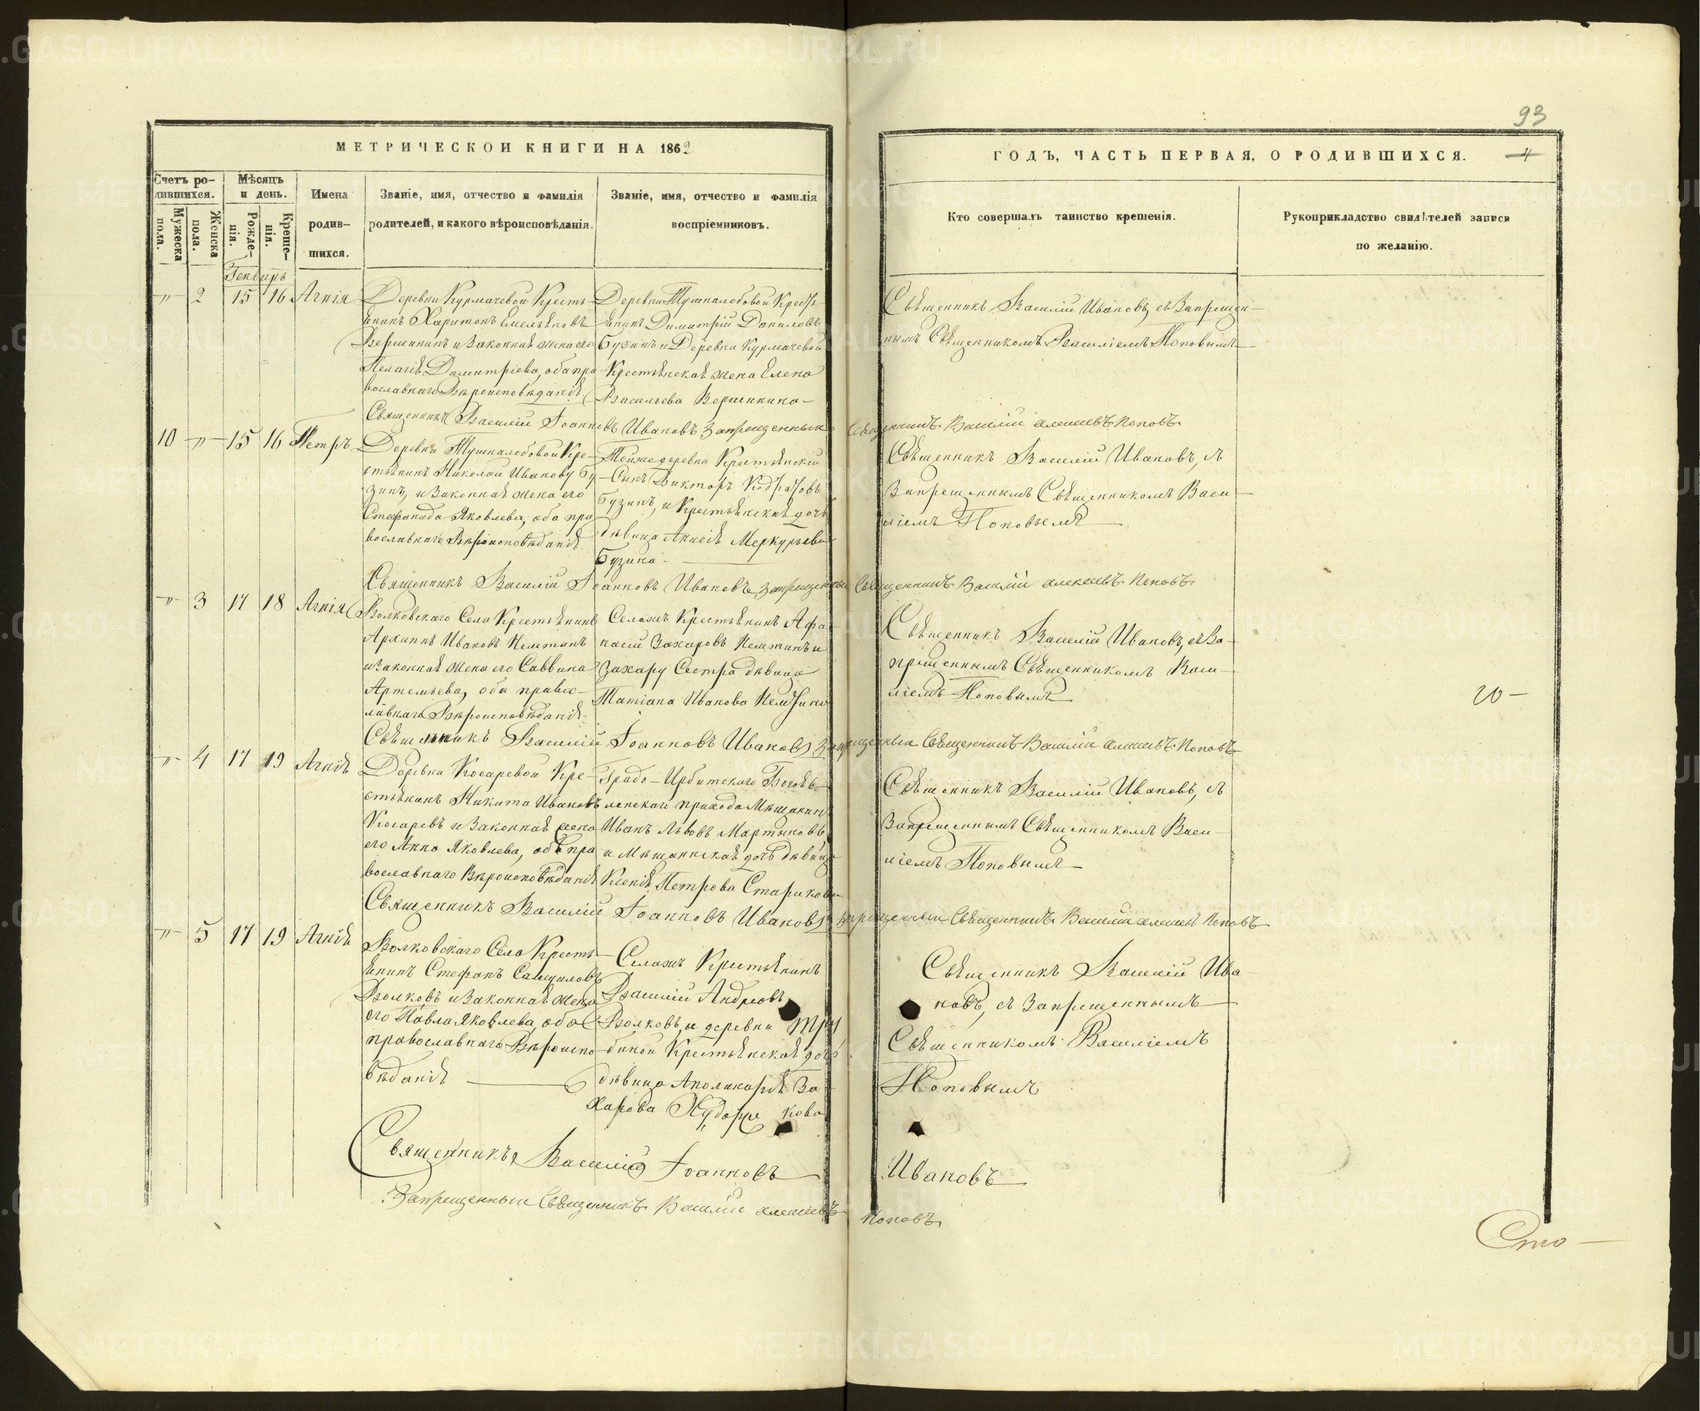 93
МЕТРИЧЕСКОЙ КНИГИ НА 1862
ГОДЪ, ЧАСТЬ ПЕРВАЯ, О РОДИВШИХСЯ.
4
Счетъ ро-
дившихся.
Мужеска
пола.
Женска
пола.
Мѣсяцъ
и день.
Рожде-
нія.
Креще-
нія.
Имена
родив-
шихся.
Званіе, имя, отчество и фамилія
родителей, и какого вѣроисповѣданія.
Званіе, имя, отчество и фамилія
воспріемниковъ.
Кто совершалъ таинство крещенія.
Рукоприкладство свидѣтелей записи
по желанію.
Генварь
" 2 15 16 Агнія
Деревни Курмачевой Кресть-
янинъ Харитонъ Емельяновъ
Вершининъ и Законная жена его
Пелагія Димитріева, оба пра-
вославнаго Вѣроисповѣданія
Деревни Тушкалобовой Кресть-
янинъ Димитрій Даниловъ
Бузинъ и Деревни Курмачевой
Крестьянская жена Елена
Васильева Вершинина
Священникъ Василій Ивановъ, съ Запрещен-
нымъ Священникомъ Василіемъ Поповымъ
Священникъ Василій Іоанновъ Ивановъ Запрещенный Священникъ Василій Алексѣевъ Поповъ
10 " 15 16 Петръ
Деревни Тушкалобовой Кре-
стьянинъ Николай Ивановъ Бу-
зинъ, и Законная жена его
Стефанида Яковлева, оба пра-
вославнаго Вѣроисповѣданія
Тойже деревни Крестьянскій
Сынъ Викторъ Кодратовъ
Бузинъ, и Крестьянская дочь
дѣвица Анисія Меркурьева
Бузина
Священникъ Василій Ивановъ, съ
Запрещеннымъ Священникомъ Васи-
ліемъ Поповымъ
Священникъ Василій Іоанновъ Ивановъ Запрещенный Священникъ Василій Алексѣевъ Поповъ
" 3 17 18 Агнія
Волковскаго Села Крестьянинъ
Архиппъ Ивановъ Кемтинъ
и Законная жена его Саввина
Артемьева, оба правос-
лавнаго Вѣроисповѣданія
Селажъ Крестьянинъ Афа-
насій Захаровъ Кемтинъ и
Захару Сестра дѣвица
Татіана Иванова Кемтина
Священникъ Василій Ивановъ, съ За-
прещеннымъ Священникомъ Васи-
ліемъ Поповымъ
20
Священникъ Василій Іоанновъ Ивановъ Запрещенный Священникъ Василій Алексѣевъ Поповъ
" 4 17 19 Агнія
Деревни Косаревой Кре-
стьянинъ Никита Ивановъ
Косаревъ и Законная жена
его Анна Яковлева, оба пра-
вославнаго Вѣроисповѣданія
Градо-Ирбитскаго Богояв-
ленскаго прихода Мѣщанинъ
Иванъ Львовъ Мартыновъ
и Мѣщанская дочь дѣвица
Ксенія Петрова Старикова
Священникъ Василій Ивановъ, съ
Запрещеннымъ Священникомъ Васи-
ліемъ Поповымъ
Священникъ Василій Іоанновъ Ивановъ Запрещенный Священникъ Василій Алексѣевъ Поповъ
" 5 17 19 Агнія
Волковскаго Села Кресть-
янинъ Стефанъ Самуиловъ
Волковъ и Законная жена
его Павла Яковлева, оба
православнаго Вѣроиспо-
вѣданія
Селажъ Крестьянинъ
Василій Андреевъ
Волковъ, и деревни
Крестьянская дочь
дѣвица Аполинарія За-
харова
Священникъ Василій Ива
новъ, съ Запрещеннымъ
Священникомъ Василіемъ
Поповымъ
Священникъ Василій Іоанновъ Ивановъ
Запрещенный Священникъ Василій Алексѣевъ Поповъ
Сто
METRIKI.GASO-URAL.RU